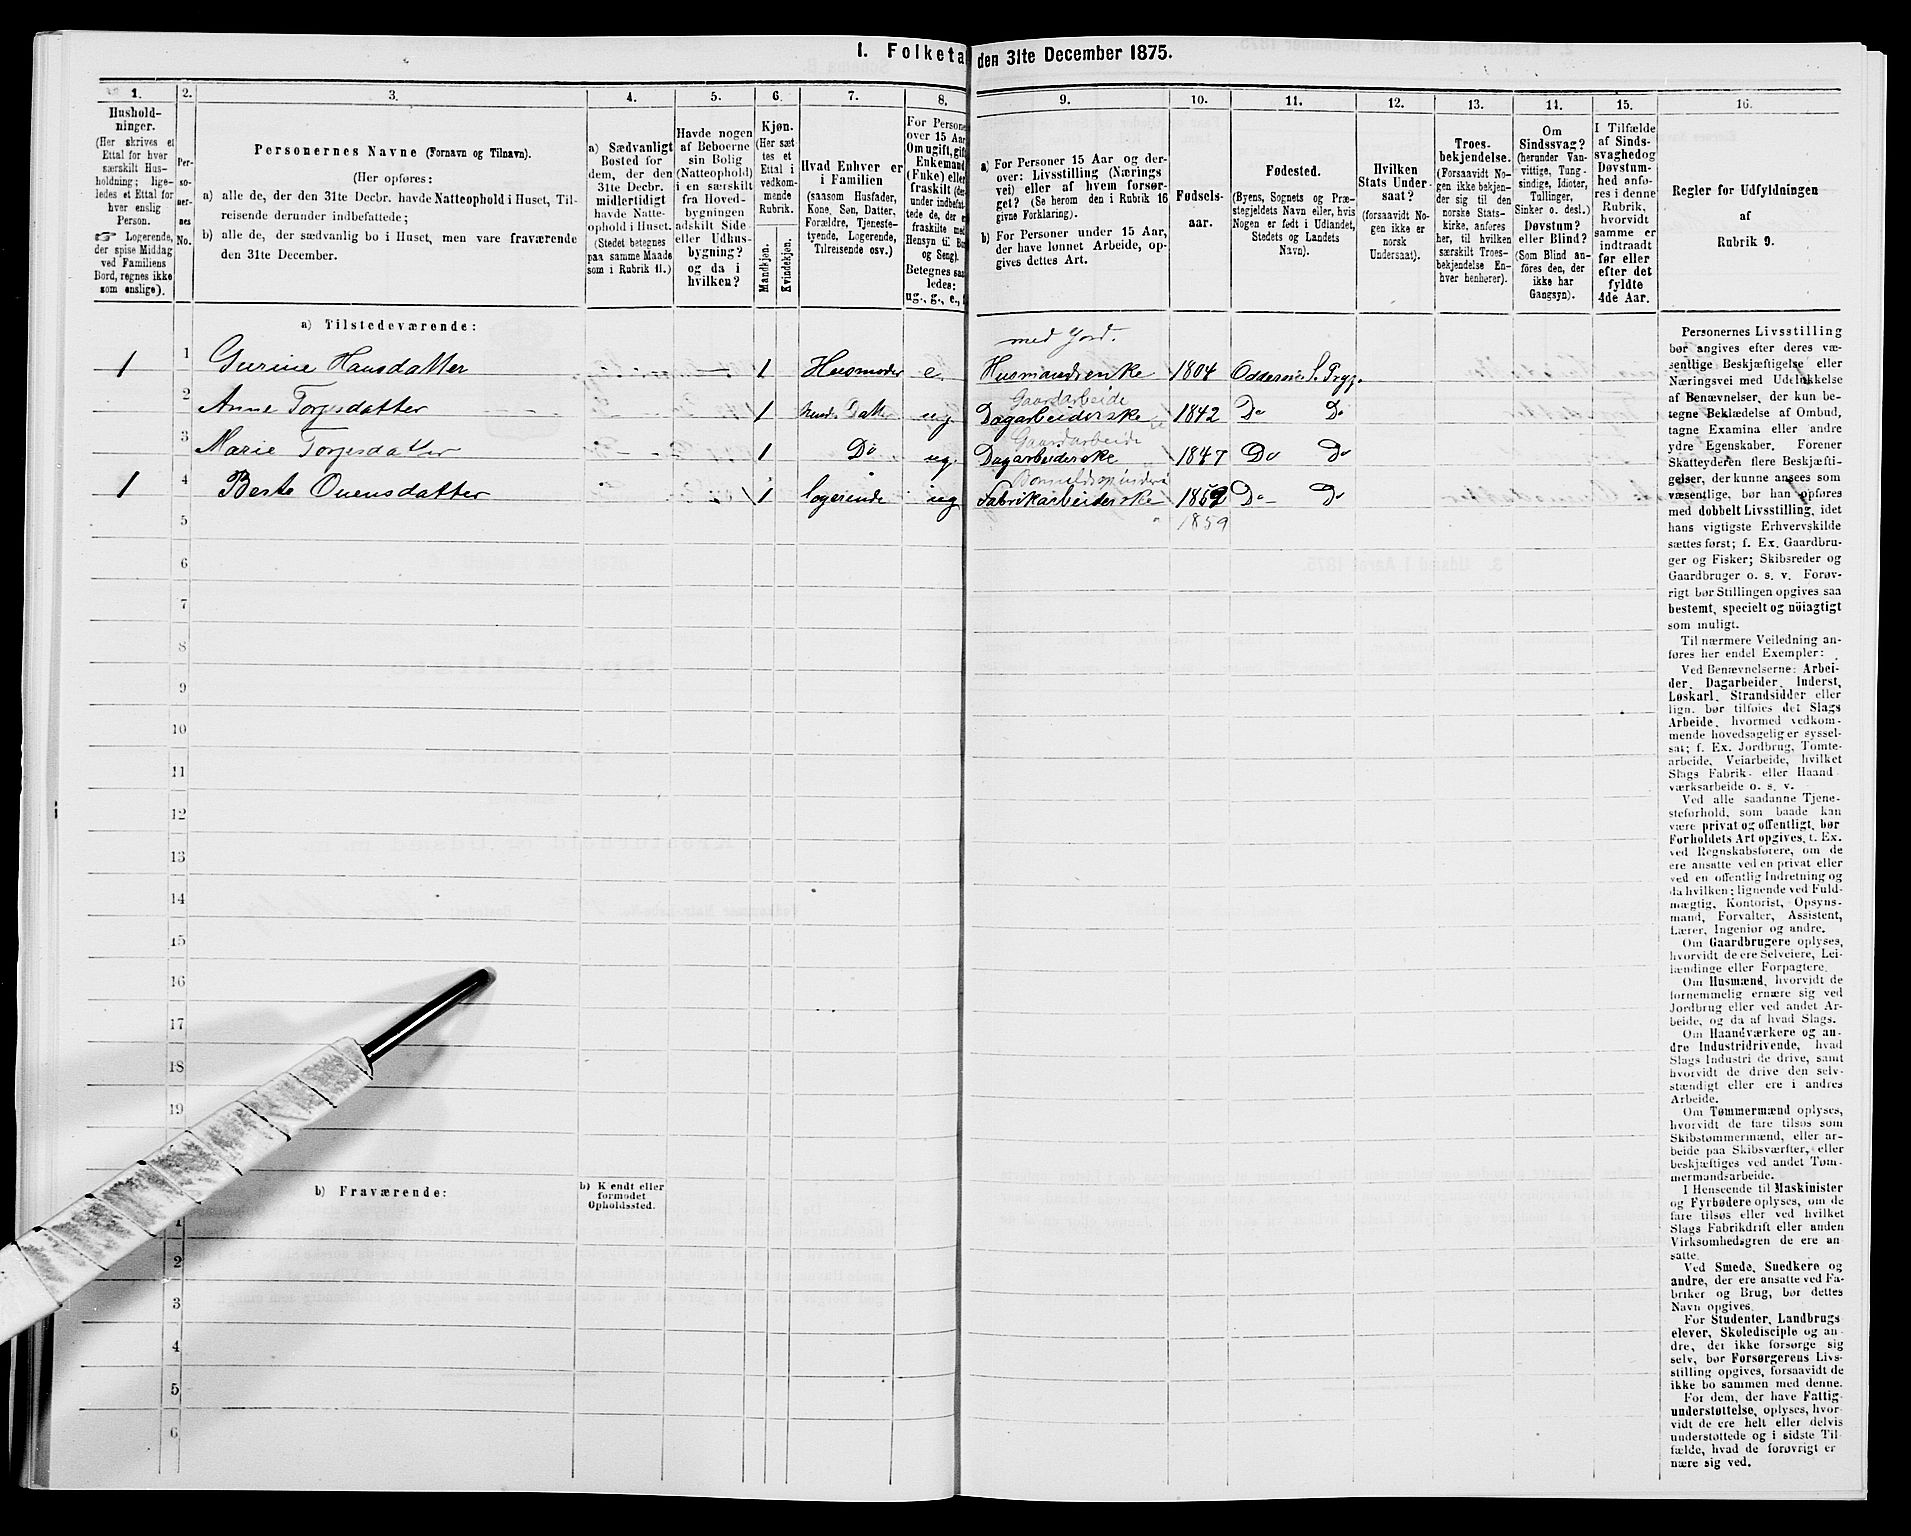 1. Folketal den 31te December 1875.
1. 2. 3. 4. 5. 6. 7. 8. 9. 10. 11. 12. 13. 14. 15. 16.
Hushold-
ninger.
(Her skrives et
Ettal for hver
særskilt Hus-
holdning; lige-
ledes et Ettal for
hver enslig
Person.
☞ Logerende,
der spise Middag
ved Familiens
Bord, regnes ikke
som enslige).
Per-
so-
ner-
nes
No.
Personernes Navne (Fornavn og Tilnavn).
(Her opføres:
a) alle de, der den 31te Decbr. havde Natteophold i Huset, Til-
reisende derunder indbefattede;
b) alle de, der sædvanlig bo i Huset, men vare fraværende
den 31te December.
a) Sædvanligt
Bosted for
dem, der den
31te Decbr.
midlertidigt
havde Natte-
ophold i Huset.
(Stedet betegnes
paa samme Maade
som i Rubrik 11.)
Havde nogen
af Beboerne
sin Bolig
(Natteophold)
i en særskilt
fra Hoved-
bygningen
adskilt Side-
eller Udhus-
bygning?
og da i
hvilken?
Kjøn.
(Her sæt-
tes et
Ettal i
vedkom-
mende
Rubrik.
Mandkjøn.
Kvindekjøn.
Hvad Enhver er
i Familien
(saasom Husfader,
Kone, Søn, Datter,
Forældre, Tjeneste-
tyende, Logerende,
Tilreisende osv.)
For Persone
over 15 Aar
Om ugift, gift,
Enkemand
(Enke) eller
fraskilt (der
under indbefat-
tede de, der e
fraskilte med
Hensyn til Bo
og Seng).
Betegnes saa
ledes:
ug., g., e.,
a) For Personer 15 Aar og der-
over: Livsstilling (Nærings
vei) eller af hvem forsør-
get? (Se herom den i Rubrik 16
givne Forklaring.)
b) For Personer under 15 Aar,
der have lønnet Arbeide, op-
gives dettes Art.
Fødsels-
aar.
Fødested.
(Byens, Sognets og Præ-
stegjeldets Navn eller, hvis
Nogen er født i Udlandet,
Stedets og Landets
Navn).
Hvilken
Stats Under-
saat?
(forsaavidt No-
gen ikke er
norsk
Undersaat).
Troes-
bekjendelse.
(Forsaavidt No-
gen ikke bekjen-
der sig til den
norske Stats-
kirke, anføres
her, til hvilken
særskilt Troes-
bekjendelse En-
hver henhører).
Om
Sindssvag?
(herunder Van-
vittige, Tung-
sindige, Idioter,
Tullinger,
Sinker o. desl.)
Døvstum?
eller Blind?
(Som Blind an-
føres den, der
ikke har
Gangsyn).
I Tilfælde
af Sinds-
svaghed og
Døvstum-
hed anfø-
res i denne
Rubrik,
hvorvidt
samme er
indtraadt
før eller
efter det
fyldte
4de Aar.
Regler for Udfyldningen
af
Rubrik 9.
a) Tilstedeværende:
med Jord.
1 1 Gurine Hansdatter 1 Husmoder e. Husmandsenke 1804 Oddernes S. Præg.
Gaardarbeide
2 Anne Torjesdatter 1 hendes Datter ug. Dagarbeiderske 1842 Do Do
Gaardarbeide
3 Marie Torjesdatter 1 Do ug. Dagarbeiderske 1847 Do Do
Bomuldsspinderi
1 4 Berte Ouensdatter 1 logerende ug Fabrikarbeiderske 1852 Do Do
5 1859
6
7
8
9
10
11
12
13
14
15
16
17
18
19
b) Fraværende:
b) Kjendt eller
formodet
Opholdssted.
1
2
3
4
5
6
Personernes Livsstilling
bør angives efter deres væ-
sentlige Beskjæftigelse eller
Næringsvei med Udelukkelse
af Benævnelser, der kun be-
tegne Beklædelse af Ombud,
tagne Examina eller andre
ydre Egenskaber. Forener
Skatteyderen flere Beskjæfti-
gelser, der kunne ansees som
væsentlige, bør han opføres
med dobbelt Livsstilling, idet
hans vigtigste Erhvervskilde
sættes først; f. Ex. Gaardbru-
ger og Fisker; Skibsreder og
Gaardbruger o. s. v. Forøv-
rigt bør Stillingen opgives saa
bestemt, specielt og nöiagtigt
som muligt.
Til nærmere Veiledning an-
føres her endel Exempler:
Ved Benævnelserne: Arbei-
der, Dagarbeider, Inderst,
Løskarl, Strandsidder eller
lign. bør tilføies det Slags
Arbeide, hvormed vedkom-
mende hovedsagelig er syssel-
sat; f. Ex. Jordbrug, Tomte-
arbeide, Veiarbeide, hvilket
Slags Fabrik- eller Haand
værksarbeide o. s. v.
Ved alle saadanne Tjene-
steforhold, som baade kan
være privat og offentligt, bør
Forholdets Art opgives, t. Ex.
ved Regnskabsførere, om de
ere ansatte ved en privat eller
ved en offentlig Indretning og
da hvilken; lignende ved Fuld-
mægtig, Kontorist, Opsyns-
mand, Forvalter, Assistent,
Lærer, Ingeniør og andre.
Om Gaardbrugere oplyses,
hvorvidt de ere Selveiere, Lei-
lændinge eller Forpagtere.
Om Husmænd, hvorvidt de
fornemmelig ernære sig ved
Jordbrug eller ved andet Ar-
beide, og da af hvad Slags.
Om Haandværkere og an-
dre Industridrivende, hvad
Slags Industri de drive, samt
hvorvidt de drive den selv-
stændigt eller ere i andres
Arbeide.
Om Tømmermænd oplyses,
hvorvidt de fare tilsøs som
Skibstømmermænd, eller ar-
beide paa Skibsværfter, eller
beskjæftiges ved andet Tøm-
mermandsarbeide.
I Henseende til Maskinister
og Fyrbødere oplyses, om de
fare tilsøs eller ved hvilket
Slags Fabrikdrift eller anden
Virksomhedsgren de ere an-
satte.
Ved Smede, Snedkere og
andre, der ere ansatte ved Fa-
briker og Brug, bør dettes
Navn opgives.
For Studenter, Landbrugs-
elever, Skoledisciple og an-
dre, der ikke forsørge sig
selv, bør Forsørgerens Livs-
stilling opgives, forsaavidt de
ikke bo sammen med denne.
For dem, der have Fattig-
understøttelse, oplyses, hvor-
vidt de ere helt eller delvis
understøttede og i sidste Til-
fælde, hvad de forøvrigt er
nære sig ved.